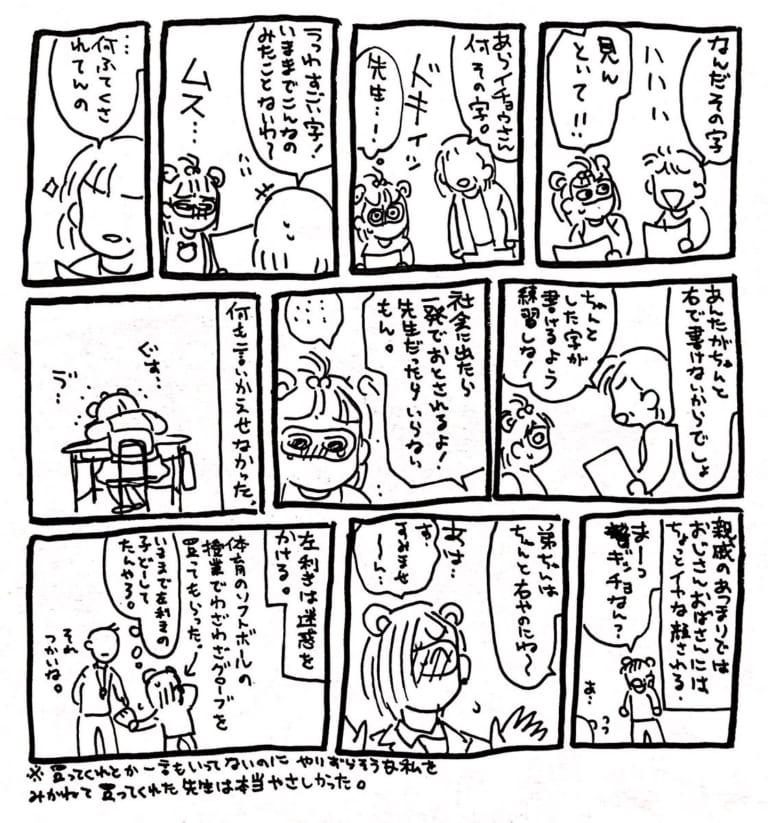 なんだその字
ハハハ
見ん
といて!!
あらイチョウさん
何その字。
ドキィッ
先生…!
うっわすごい字!
いままでこんなの
みたことないわ〜
ムス…
…何ふてくさ
れてんの
あんたがちゃんと
右で書けないからでしょ
ちゃんと
した字が
書けるよう
練習しな!
社会に出たら
一発でおとされるよ!
先生だったらいらない
もん。
何も言いかえせなかった。
ぐす…
ゔ…
親戚のあつまりでは
おじさんおばさんには
ちょっとイヤな顔される。
まーっ
ギッチョなん?
あ…
弟ちゃんは
ちゃんと右やのにね〜
あは…
す…
すみませ
〜ん…
左利きは迷惑を
かける。
体育のソフトボールの
授業でわざわざグローブを
買ってもらった。
いままで左利きの
子どーして
たんやろ。
それ
つかいな。
※買ってくれとか一言もいってないのに やりずらそうな私を
みかねて買ってくれた先生は本当やさしかった。